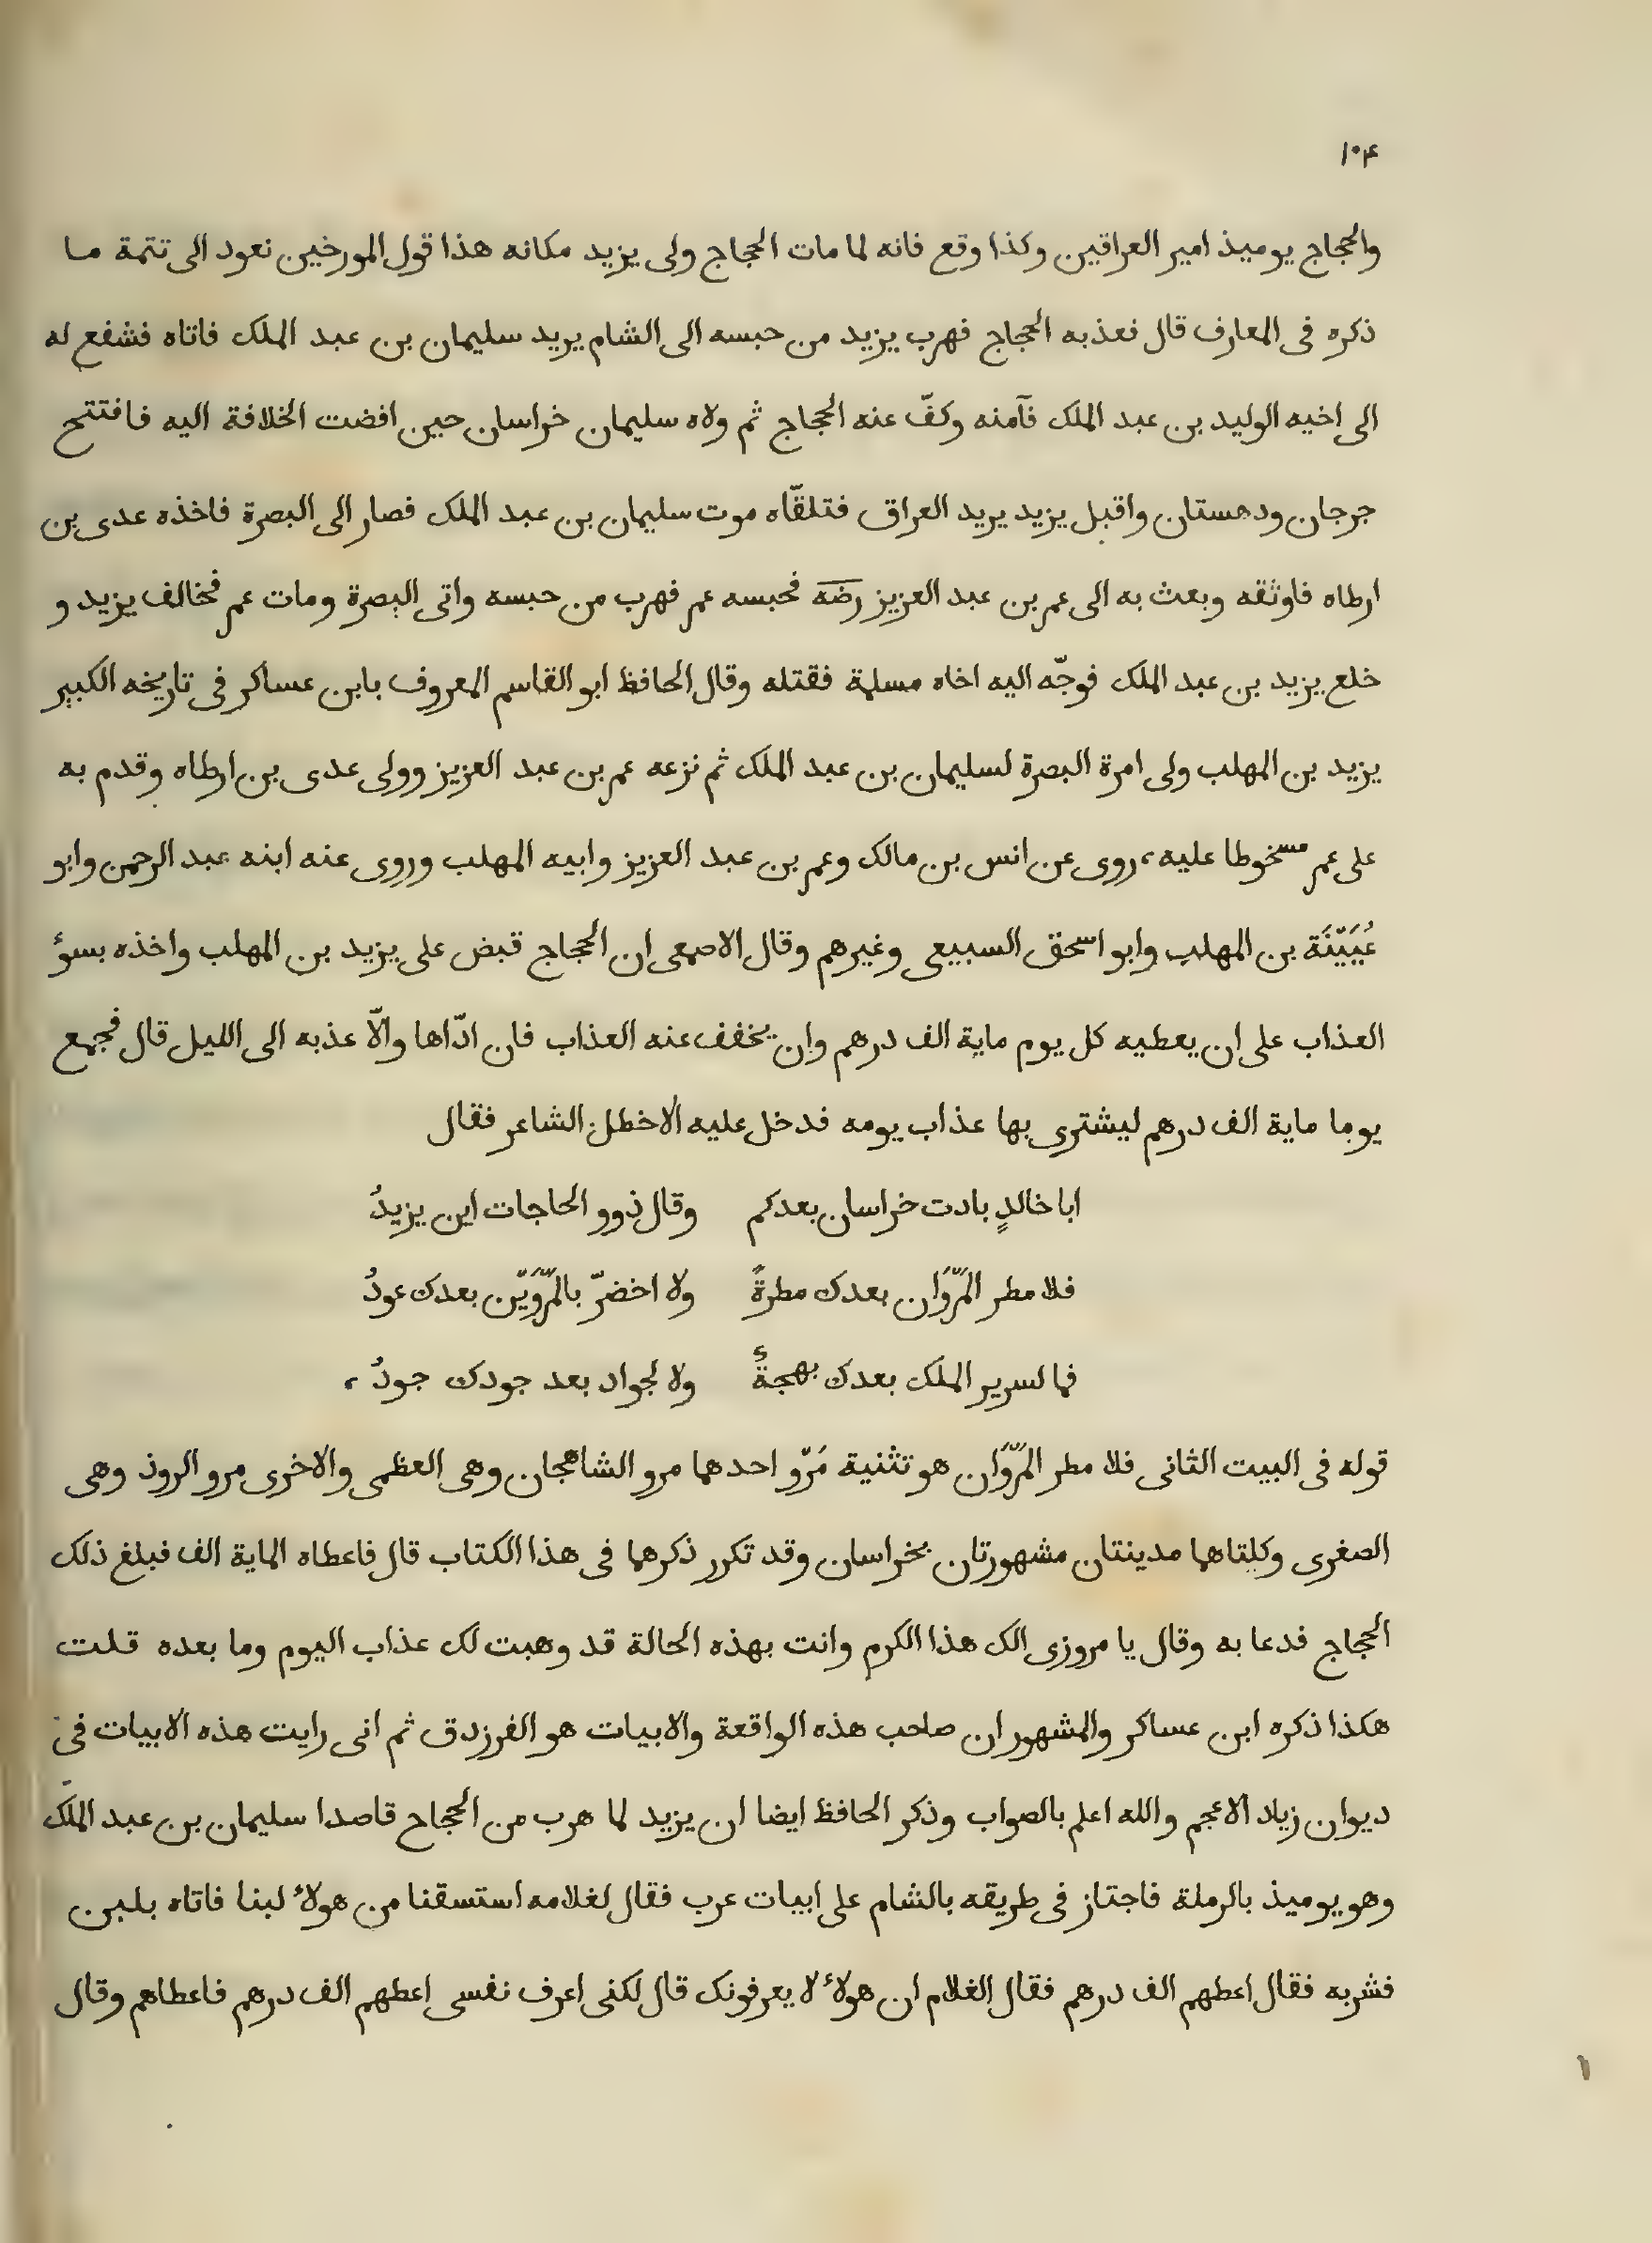 ١٠۴
والحجاج يوميذ امير العراقين وكذا وقع فانه لما مات الحجاج ولى يزيد مكانه هذا قول المورخين نعود الى تتمة ما
ذكره فى المعارف قال فعذبه الحجاج فهرب يزيد من حبسه الى الشام يريد سليمان بن عبد الملك فاتاه فشفع له
الى اخيه الوليد بن عبد الملك فآمنه وكفّ عنه الحجاج ثم ولاه سليمان خراسان حين افضت الخلافة اليه فافتتح
جرجان ودهستان واقبل يزيد يريد العراق فتلقّاه موت سليمان بن عبد الملك فصار الى البصرة فاخذه عدى بن
ارطاه فاوثقه وبعث به الى عمر بن عبد العزيز رضه فحبسه عمر فهرب من حبسه واتى البصرة ومات عمر فخالف يزيد و
خلع يزيد بن عبد الملك فوجّه اليه اخاه مسلمة فقتله وقال الحافظ ابو القاسم المعروف بابن عساكر فى تاريخه الكبير
يزيد بن المهلب ولى امرة البصرة لسليمان بن عبد الملك ثم نزعه عمر بن عبد العزيز وولى عدى بن ارطاه وقدم به
على عمر مسخوطا عليه، روى عن انس بن مالك وعمر بن عبد العزيز وابيه المهلب وروى عنه ابنه عبد الرحمن وابو
عُيَيّنَة بن المهلب وابو اسحق السبيعى وغيرهم وقال الاصمعى ان الحجاج قبض على يزيد بن المهلب واخذه بسؤ
العذاب على ان يعطيه كل يوم ماية الف درهم وان يخفف عنه العذاب فان ادّاها والّا عذبه الى الليل قال فجمع
يوما ماية الف درهم ليشترى بها عذاب يومه فدخل عليه الاخطل الشاعر فقال
ابا خالدٍ بادت خراسان بعدكم وقال ذوو الحاجات اين يزيدُ
فلا مطر المَرّوَان بعدك مطرةً ولا اخضرّ بالمَرّوَيّن بعدك عودُ
فما لسرير الملك بعدك بهجةٌ ولا لجواد بعد جودك جودُ،
قوله فى البيت الثانى فلا مطر المَرّوَان هو تثنية مَرّو احدهما مرو الشاهجان وهى العظمى والاخرى مرو الروذ وهى
الصغرى وكلتاهما مدينتان مشهورتان بخراسان وقد تكرر ذكرهما فى هذا الكتاب قال فاعطاه الماية الف فبلغ ذلك
الحجاج فدعا به وقال يا مروزى الك هذا الكرم وانت بهذه الحالة قد وهبت لك عذاب اليوم وما بعده قلت
هكذا ذكره ابن عساكر والمشهور ان صاحب هذه الواقعة والابيات هو الفرزدق ثم انى رايت هذه الابيات فى
ديوان زياد الاعجم والله اعلم بالصواب وذكر الحافظ ايضا ان يزيد لما هرب من الحجاج قاصدا سليمان بن عبد الملك
وهو يوميذ بالرملة فاجتاز فى طريقه بالشام على ابيات عرب فقال لغلامه استسقنا من هولأ لبنا فاتاه بلبن
فشربه فقال اعطهم الف درهم فقال الغلام ان هولأ لا يعرفونك قال لكنى اعرف نفسى اعطهم الف درهم فاعطاهم وقال